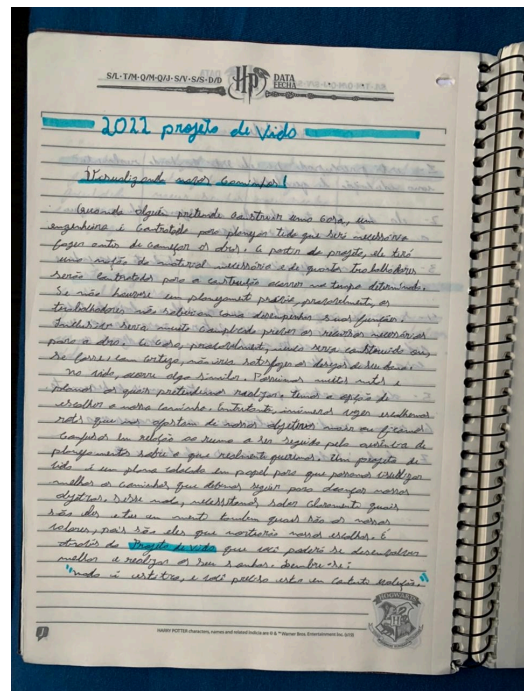 S/L·T/M·Q/M·Q/J·S/V·S/S·D/D
HP
DATA
FECHA
2022 projeto de vida
Visualizando novos caminhos!
Quando alguém pretende construir uma casa, um
engenheiro é contratado para planejar tudo que será necessário
fazer antes de começar as obras. A partir do projeto, ele terá
uma noção do material necessário e de quantos trabalhadores
serão contratados para a construção ocorrer no tempo determinado.
Se não houvesse um planejamento prévio, provavelmente, os
trabalhadores não saberiam como desempenhar suas funções.
Também seria muito complicado prever os recursos necessários
para a obra. A casa, provavelmente, nunca seria construída ou,
se fosse, com certeza, não iria satisfazer os desejos de seu dono.
na vida, ocorre algo similar. Possuímos muitas metas e
planos os quais pretendemos realizar. temos a opção de
escolher o nosso caminho. Entretanto, inúmeras vezes escolhemos
rotas que nos afastam de nossos objetivos maior ou ficamos
confusos em relação ao rumo a ser seguido pela ausência de
planejamento sobre o que realmente queremos. Um projeto de
vida é um plano colocado em papel para que possamos visualizar
melhor os caminhos que devemos seguir para alcançar nossos
objetivos. desse modo, necessitamos saber claramente quais
são eles e ter em mente também quais são os nossos
valores, pois são eles que nortearão nossas escolhas. É
através do Projeto de vida que você poderá se desenvolver
melhor e realizar os seus sonhos. Lembre-se:
"nada é estático, e você precisa estar em constante evolução."
HOGWARTS
HARRY POTTER characters, names and related indicia are © & ™ Warner Bros. Entertainment Inc.